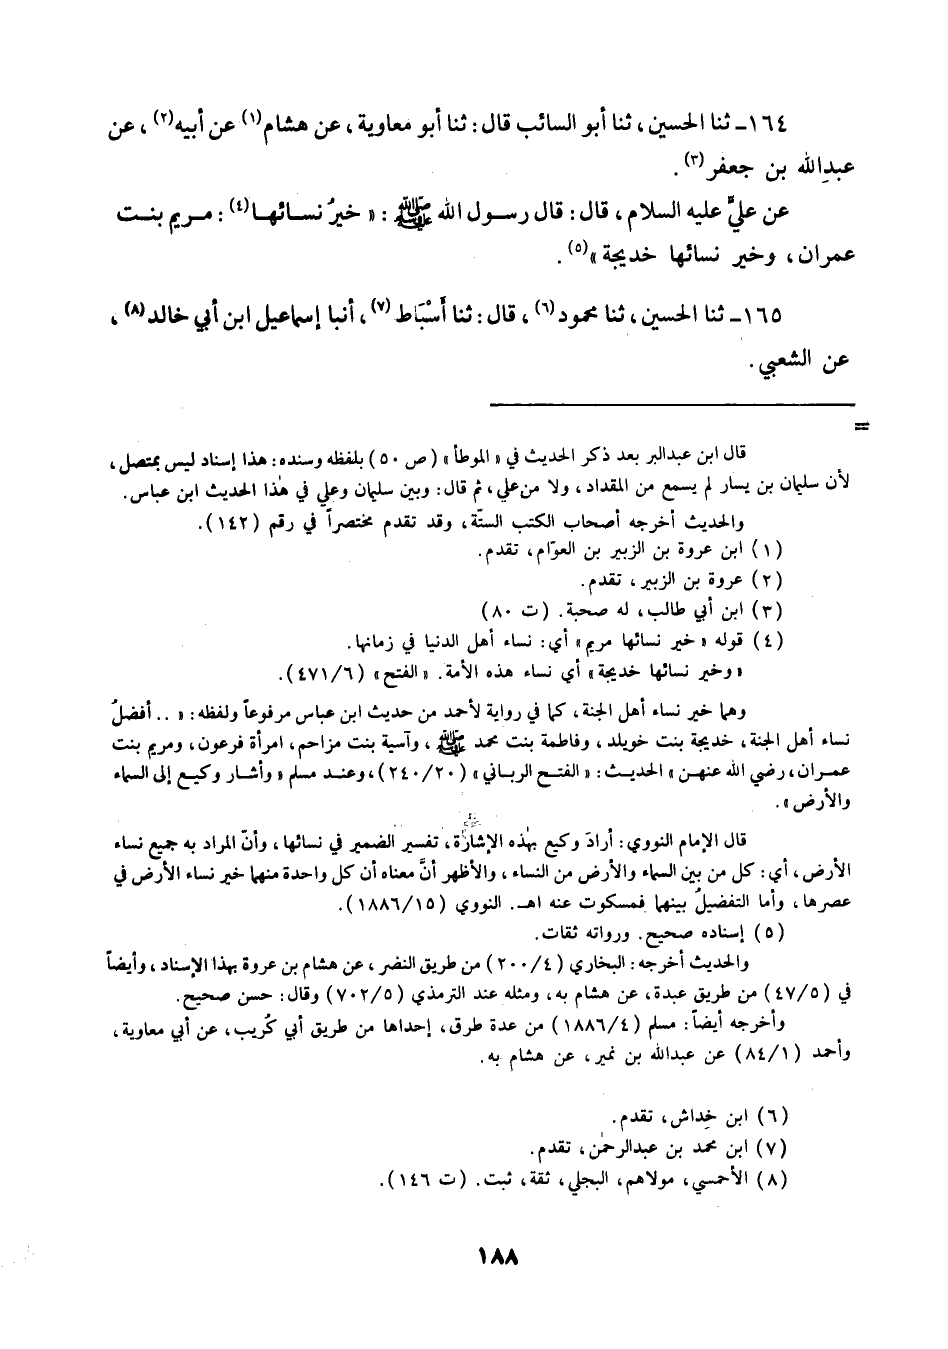 ١٦٤ـ ثنا الحسين، ثنا أبو السائب قال: ثنا أبو معاوية، عن هشام(١) عن أبيه(٢)، عن
عبدِالله بن جعفر(٣).
عن عليٍّ عليه السلام، قال: قال رسول الله ﷺ: «خيرُ نسائها(٤): مريم بنت
عمران، وخير نسائها خديجة»(٥).
١٦٥ـ ثنا الحسين، ثنا محمود(٦)، قال: ثنا أَسْبَاط(٧)، أنبا إسماعيل ابن أبي خالد(٨)،
عن الشعبي.
=
قال ابن عبدالبر بعد ذكر الحديث في «الموطأ» (ص ٥٠) بلفظه وسنده: هذا إسناد ليس بمتصل،
لأن سليمان بن يسار لم يسمع من المقداد، ولا من علي، ثم قال: وبين سليمان وعلي في هٰذا الحديث ابن عباس.
والحديث أخرجه أصحاب الكتب الستّة، وقد تقدم مختصراً في رقم (١٤٢).
(١) ابن عروة بن الزبير بن العوّام، تقدم.
(٢) عروة بن الزبير، تقدم.
(٣) ابن أبي طالب، له صحبة. (ت ٨٠)
(٤) قوله «خير نسائها مريم» أي: نساء أهل الدنيا في زمانها.
«وخير نسائها خديجة» أي نساء هذه الأمة. «الفتح» (٤٧١/٦).
وهما خير نساء أهل الجنة، كما في رواية لأحمد من حديث ابن عباس مرفوعاً ولفظه: «.. أفضلُ
نساء أهل الجنة، خديجة بنت خويلد، وفاطمة بنت محمد ﷺ، وآسية بنت مزاحم، امرأة فرعون، ومريم بنت
عمران، رضي الله عنهن» الحديث: «الفتح الرباني» (٢٤٠/٢٠)، وعند مسلم «وأشار وكيع إلى السماء
والأرض».
قال الإمام النووي: أرادَ وكيع بهٰذه الإشارة، تفسير الضمير في نسائها، وأنّ المراد به جميع نساء
الأرض، أي: كل من بين السماء والأرض من النساء، والأظهر أنَّ معناه أن كل واحدة منهما خير نساء الأرض في
عصرها، وأما التفضيلُ بينهما فمسكوت عنه اهـ. النووي (١٨٨٦/١٥).
(٥) إسناده صحيح. ورواته ثقات.
والحديث أخرجه: البخاري (٢٠٠/٤) من طريق النضر، عن هشام بن عروة بهذا الإسناد، وأيضاً
في (٤٧/٥) من طريق عبدة، عن هشام به، ومثله عند الترمذي (٧٠٢/٥) وقال: حسن صحيح.
وأخرجه أيضاً: مسلم (١٨٨٦/٤) من عدة طرق، إحداها من طريق أبي كُريب، عن أبي معاوية،
وأحمد (٨٤/١) عن عبدالله بن نمير، عن هشام به.
(٦) ابن خِداش، تقدم.
(٧) ابن محمد بن عبدالرحمٰن، تقدم.
(٨) الأحمسي، مولاهم، البجلي، ثقة، ثبت. (ت ١٤٦).
١٨٨